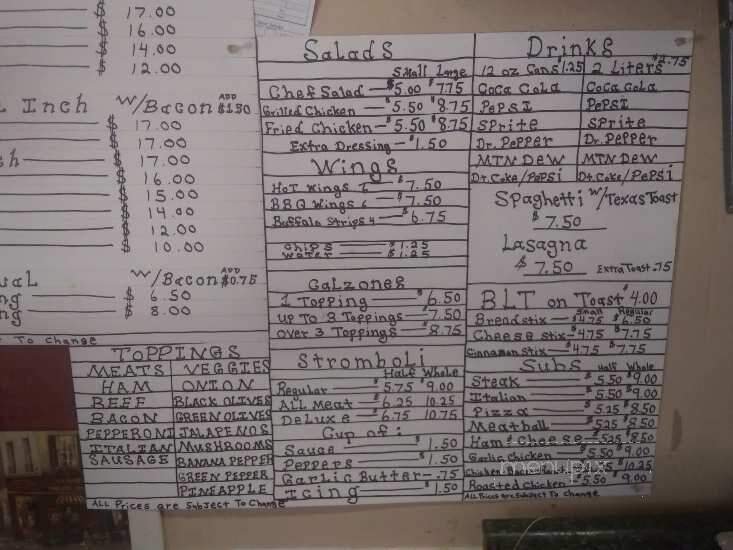 $ 17.00
$ 16.00
$ 14.00
$ 12.00
Inch W/Bacon ADD $1.50
$ 17.00
$ 17.00
$ 17.00
$ 16.00
$ 15.00
$ 14.00
$ 12.00
$ 10.00
W/Bacon ADD $0.75
$ 6.50
$ 8.00
To Change
TOPPINGS
MEATS VEGGIES
HAM ONION
BEEF BLACK OLIVES
BACON GREEN OLIVES
PEPPERONI JALAPENOS
ITALIAN MUSHROOMS
SAUSAGE BANANA PEPPER
GREEN PEPPER
PINEAPPLE
ALL Prices are Subject To Change
Salads
Small Large
Chef Salad $5.00 $7.75
Grilled Chicken $5.50 $8.75
Fried Chicken $5.50 $8.75
Extra Dressing $1.50
Wings
HOT Wings 6 $7.50
BBQ Wings 6 $7.50
Buffalo Strips 4 $6.75
Chips $1.25
Water $1.25
Calzones
1 Topping $6.50
up To 3 Toppings $7.50
over 3 Toppings $8.75
Stromboli
Half Whole
Regular $5.75 $9.00
ALL Meat $6.25 10.25
Deluxe $6.75 10.75
Cup of:
Sauce $1.50
Peppers $1.50
Garlic Butter .75
Icing $1.50
Drinks
12 oz Cans $1.25 2 Liters $2.75
Coca Cola Coca Cola
Pepsi Pepsi
Sprite Sprite
Dr. Pepper Dr. Pepper
MTN Dew MTN Dew
Dt. Coke/Pepsi Dt. Coke/Pepsi
Spaghetti W/Texas Toast
$7.50
Lasagna
$7.50 Extra Toast .75
BLT on Toast $4.00
Small Regular
Breadstix $4.75 $6.50
Cheese stix $4.75 $7.75
Cinnamon Stix $4.75 $7.75
Subs Half Whole
Steak $5.50 $9.00
Italian $5.50 $9.00
Pizza $5.25 $8.50
Meatball $5.25 $8.50
Ham & Cheese $5.25 $8.50
Garlic Chicken $5.50 $9.00
Chicken $10.25
Roasted Chicken $5.50 $9.00
All Prices are Subject To Change
menupix